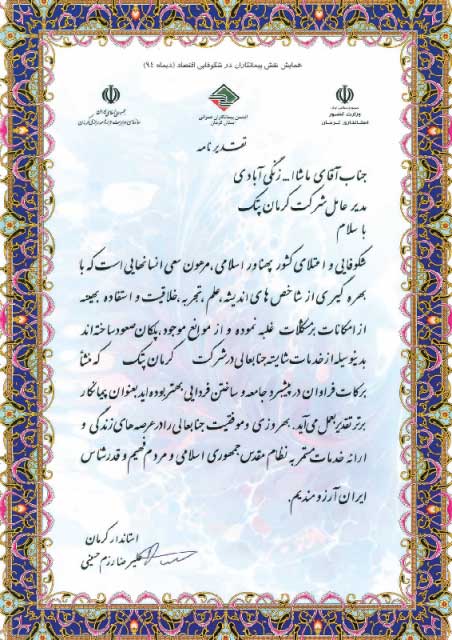 همایش نقش پیمانکاران در شکوفایی اقتصاد (دیماه ۹٤)
وزارت کشور
استانداری کرمان
انجمن پیمانکاران عمرانی
استان کرمان
تقدیرنامه
جناب آقای ماشاا... زنگی آبادی
مدیر عامل شرکت کرمان پتک
با سلام
شکوفایی و اعتلای کشور پهناور اسلامی، مرهون سعی انسانهایی است که با
بهره گیری از شاخص های اندیشه، علم، تجربه، خلاقیت و استفاده بهینه
از امکانات بر مشکلات غلبه نموده و از موانع موجود، پلکان صعود ساخته اند
بدینوسیله از خدمات شایسته جنابعالی در شرکت کرمان پتک که منشأ
برکات فراوان در پیشبرد جامعه و ساختن فردایی بهتر بوده اید بعنوان پیمانکار
برتر تقدیر بعمل می آید. بهروزی و موفقیت جنابعالی را در عرصه های زندگی و
ارائه خدمات مستمر به نظام مقدس جمهوری اسلامی و مردم فهیم و قدرشناس
ایران آرزومندیم.
استاندار کرمان
علیرضا رزم حسینی